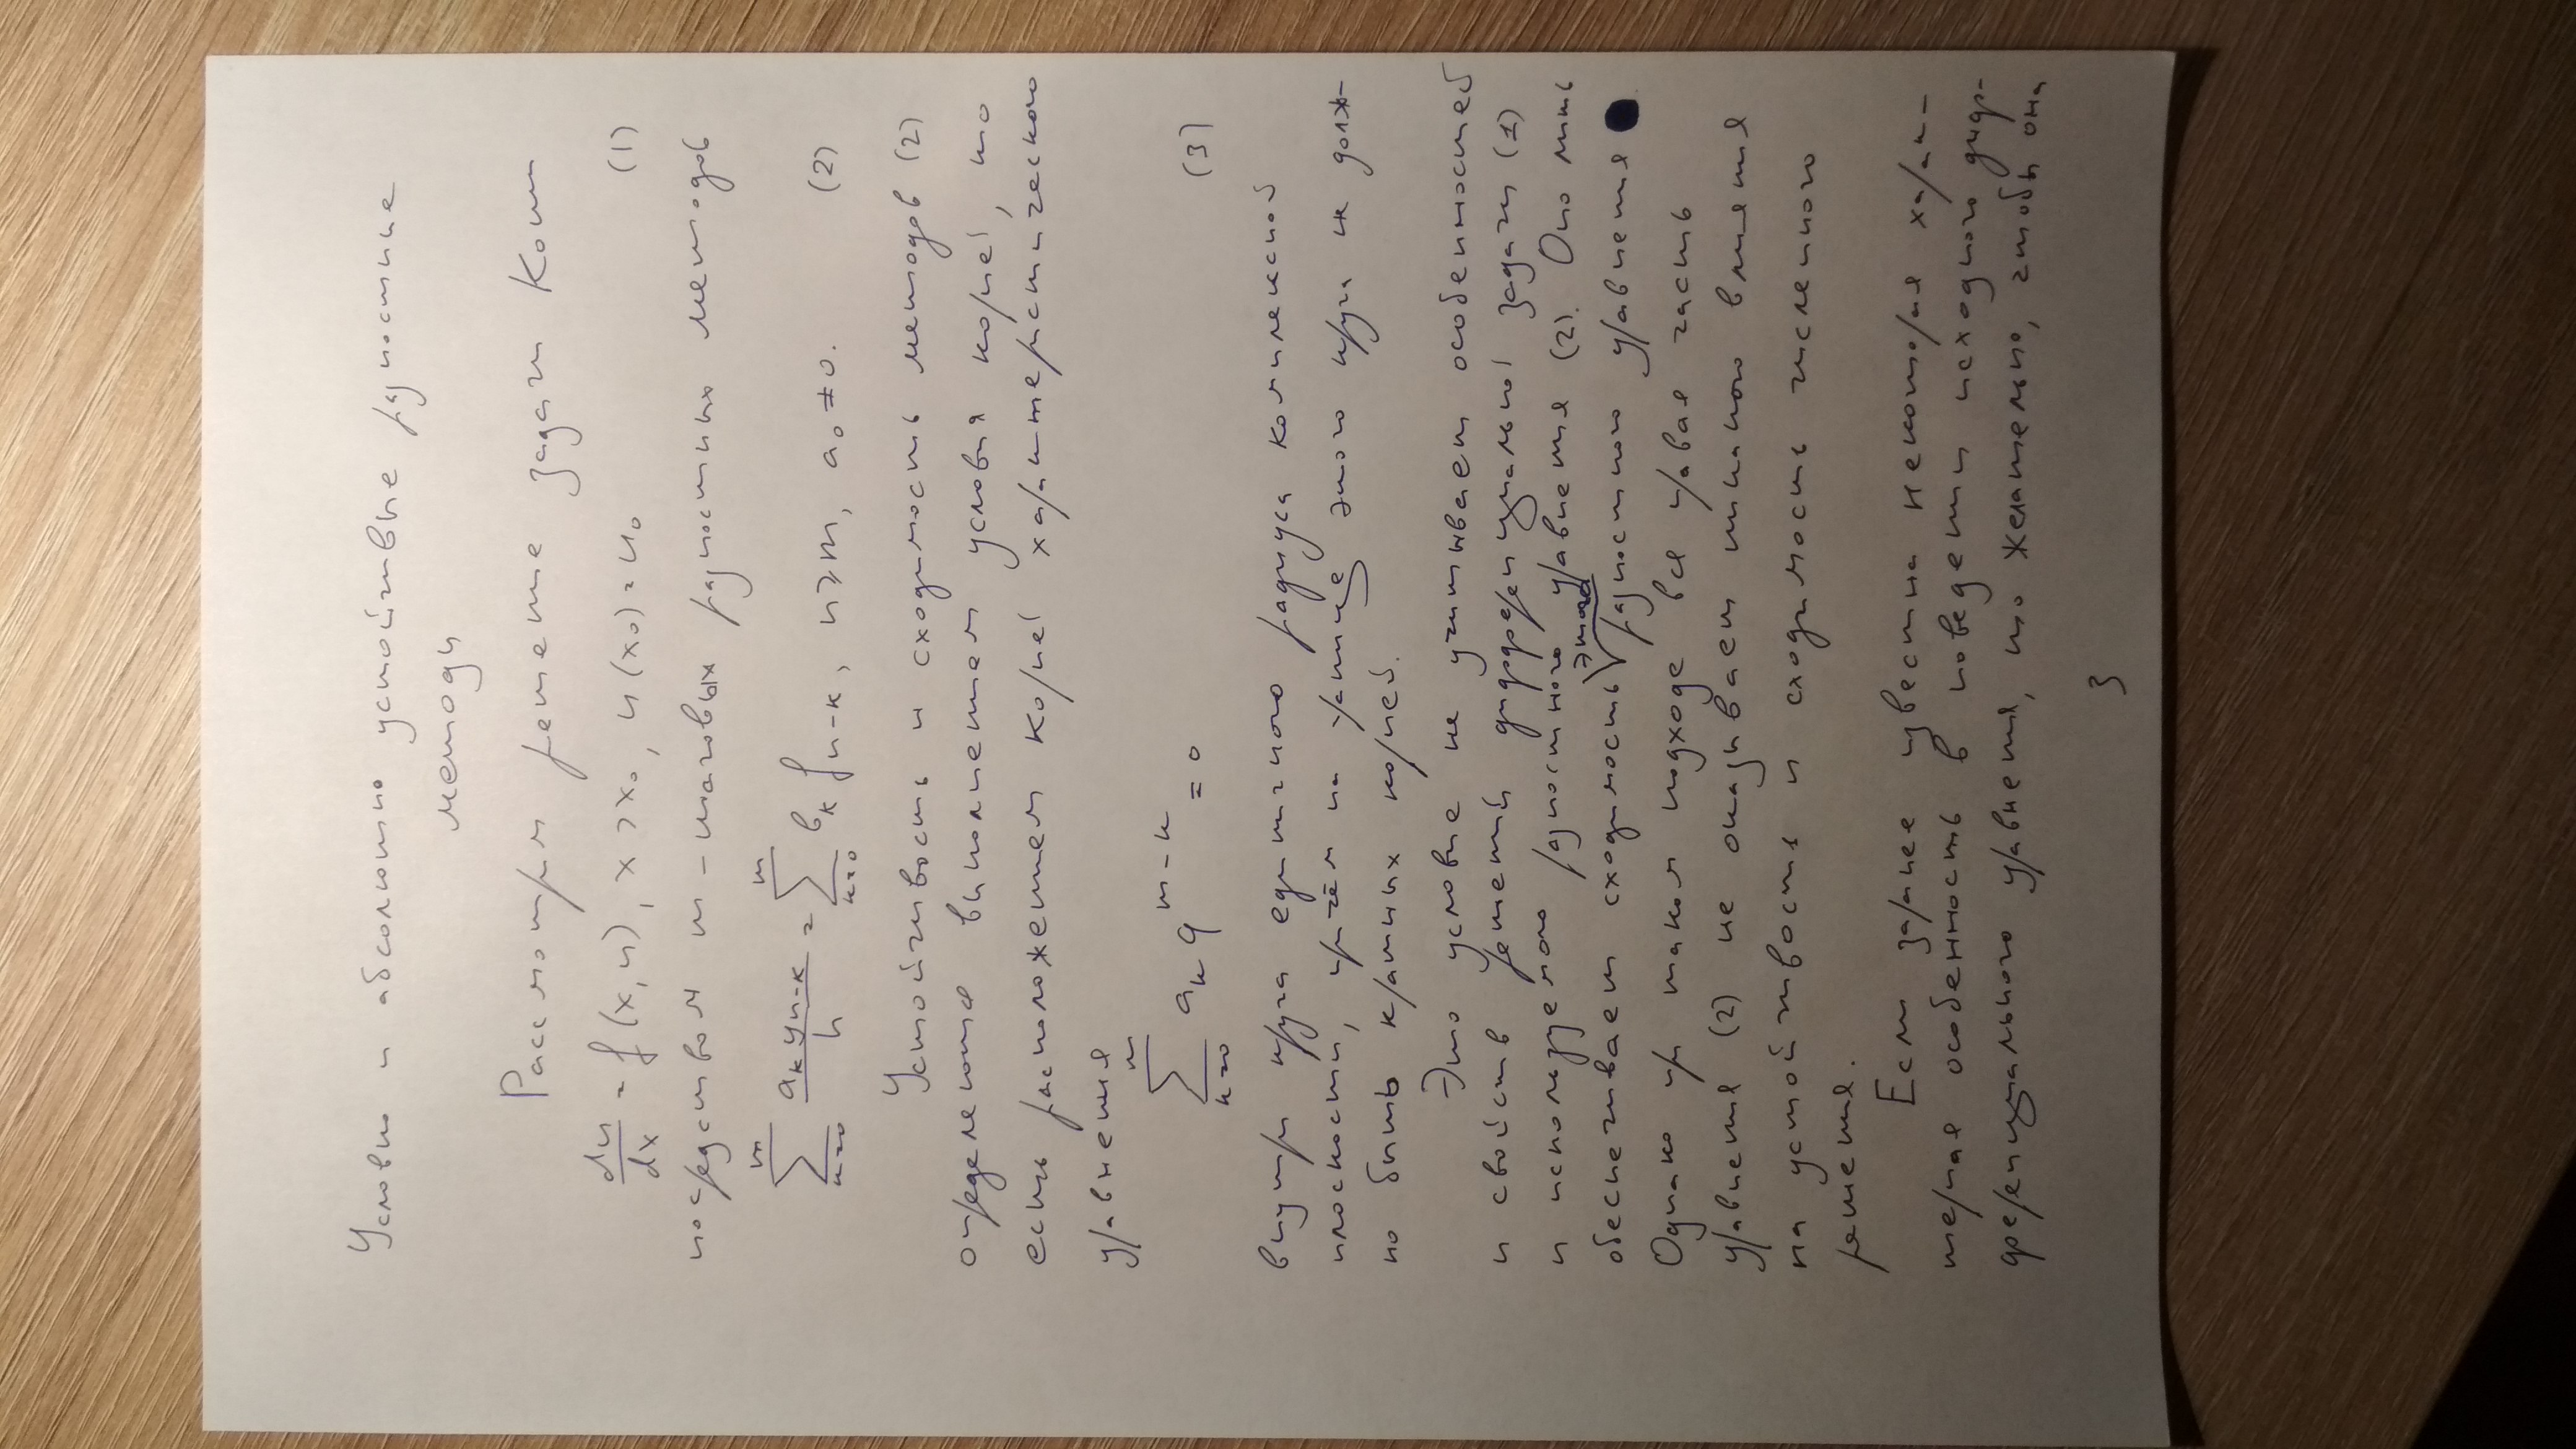 Условно и абсолютно устойчивые разностные
методы
Рассмотрим решение задачи Коши
du/dx = f(x, u), x > x₀, u(x₀) = u₀ (1)
посредством m-шаговых разностных методов
∑_{k=0}^{m} a_k y_{n-k}/h = ∑_{k=0}^{m} b_k f_{n-k}, n ≥ m, a₀ ≠ 0. (2)
Устойчивость и сходимость методов (2)
определяются выполнением условия корней, то
есть расположением корней характеристического
уравнения
∑_{k=0}^{m} a_k q^{m-k} = 0 (3)
внутри круга единичного радиуса комплексной
плоскости, причём на границе этого круга не долж-
но быть кратных корней.
Это условие не учитывает особенностей
и свойств решений дифференциальной задачи (1)
и используемого разностного уравнения (2). Оно лишь
обеспечивает сходимость этого разностного уравнения
Однако при таком подходе вся правая часть
уравнения (2) не оказывает никакого влияния
на устойчивость и сходимость численного
решения.
Если заранее известна некоторая харак-
терная особенность в поведении исходного диф-
ференциального уравнения, то желательно, чтобы она
3